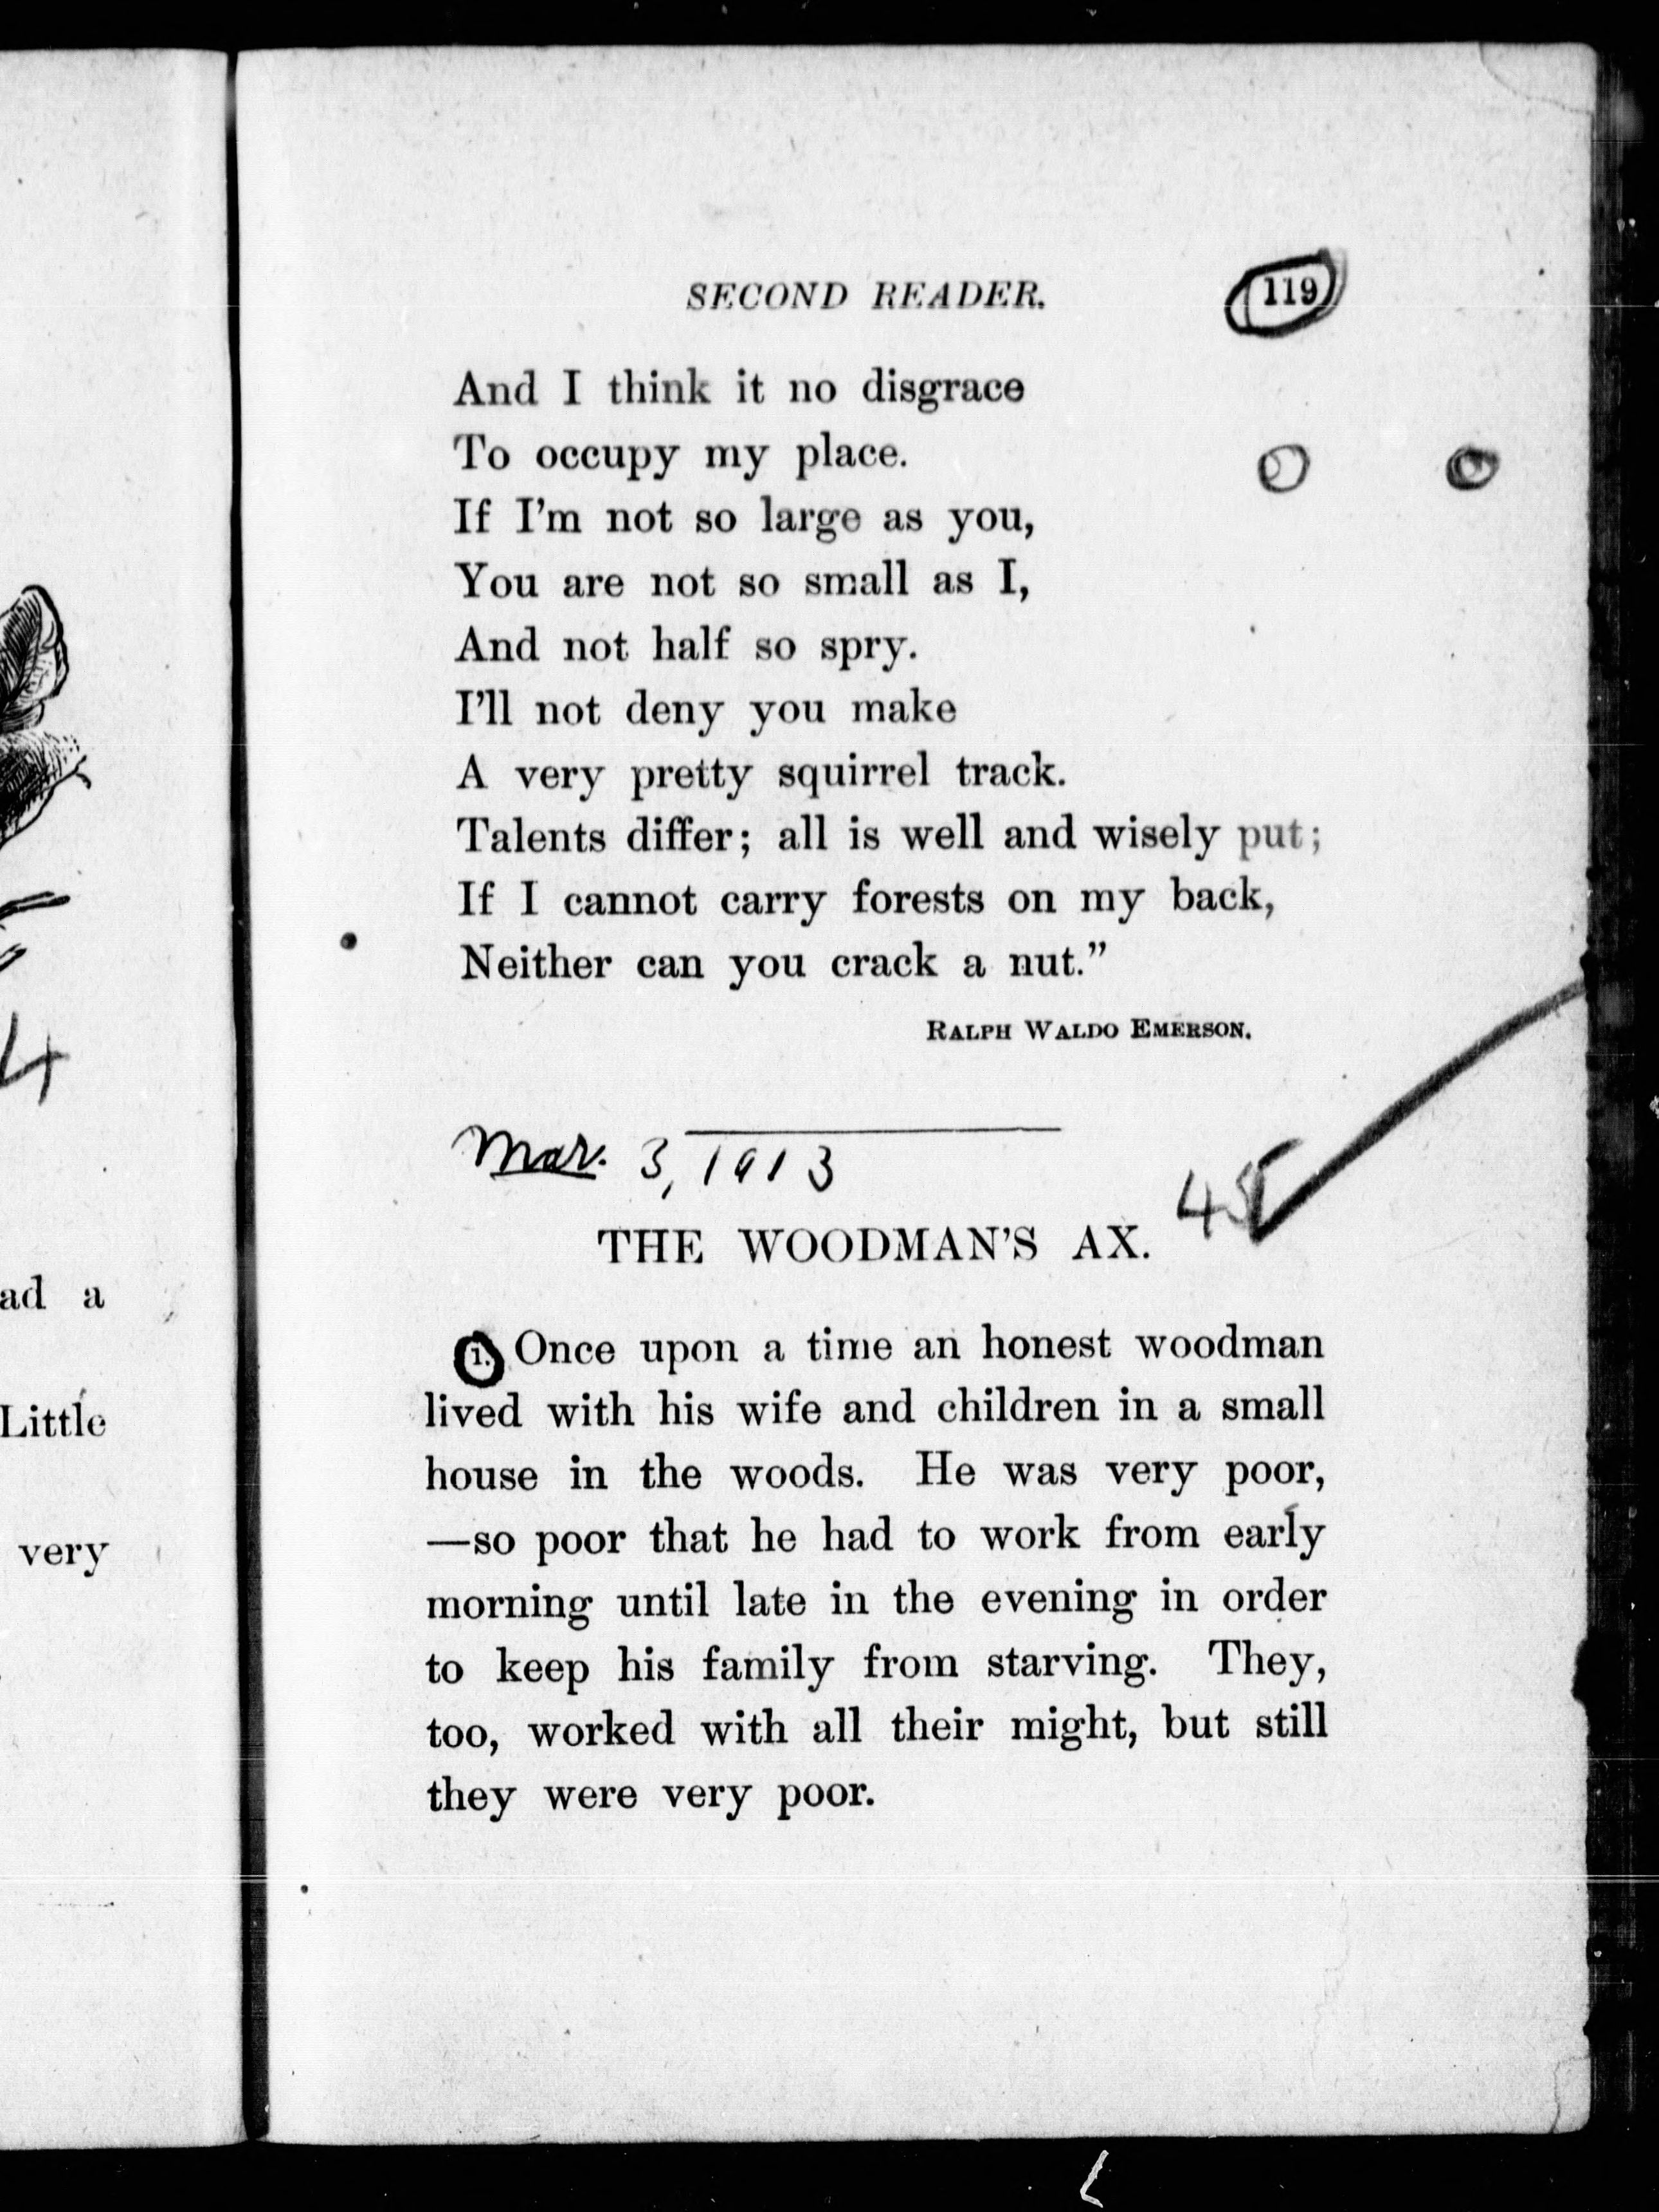 4
ad a
Little
very
SECOND READER. 119
And I think it no disgrace
To occupy my place.
If I'm not so large as you,
You are not so small as I,
And not half so spry.
I'll not deny you make
A very pretty squirrel track.
Talents differ; all is well and wisely put;
If I cannot carry forests on my back,
Neither can you crack a nut.”
RALPH WALDO EMERSON.
Mar. 3, 1913
45
THE WOODMAN'S AX.
1. Once upon a time an honest woodman
lived with his wife and children in a small
house in the woods. He was very poor,
—so poor that he had to work from early
morning until late in the evening in order
to keep his family from starving. They,
too, worked with all their might, but still
they were very poor.